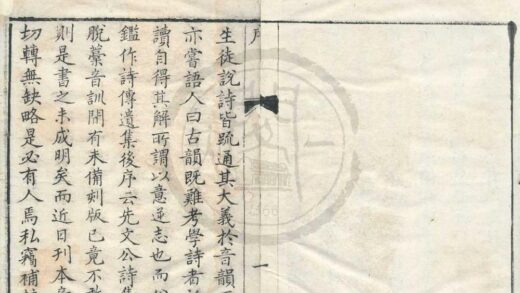 生徒說詩皆疏通其大義於音韻
亦嘗語人曰古韻既難考學詩者
讀自得其解所謂以意逆志也而
鑑作詩傳遺集後序云先文公詩集
脫藁音訓間有未備刻版已竟不
則是書之未成明矣而近日刊本
切轉無缺略是必有人焉私竊補
一